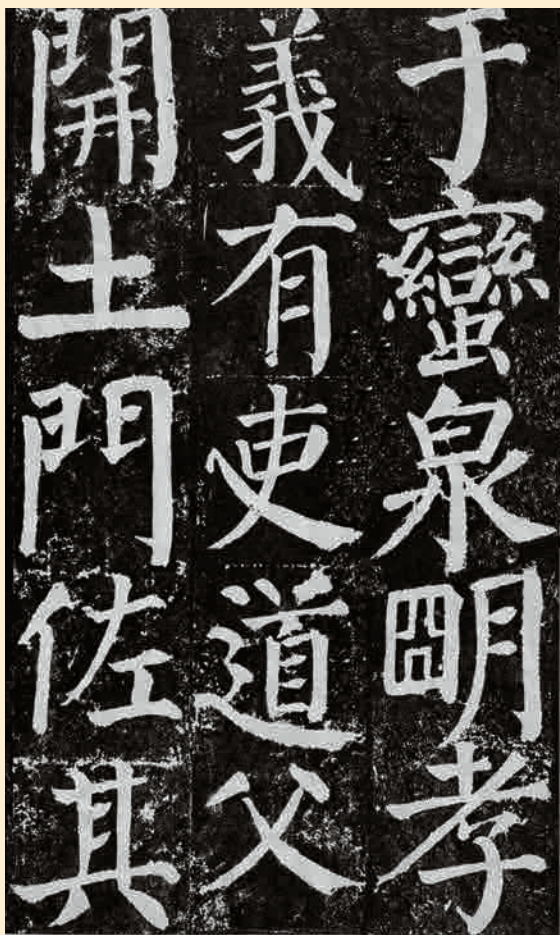 于蠻泉明孝
義有吏道父
開土門佐其